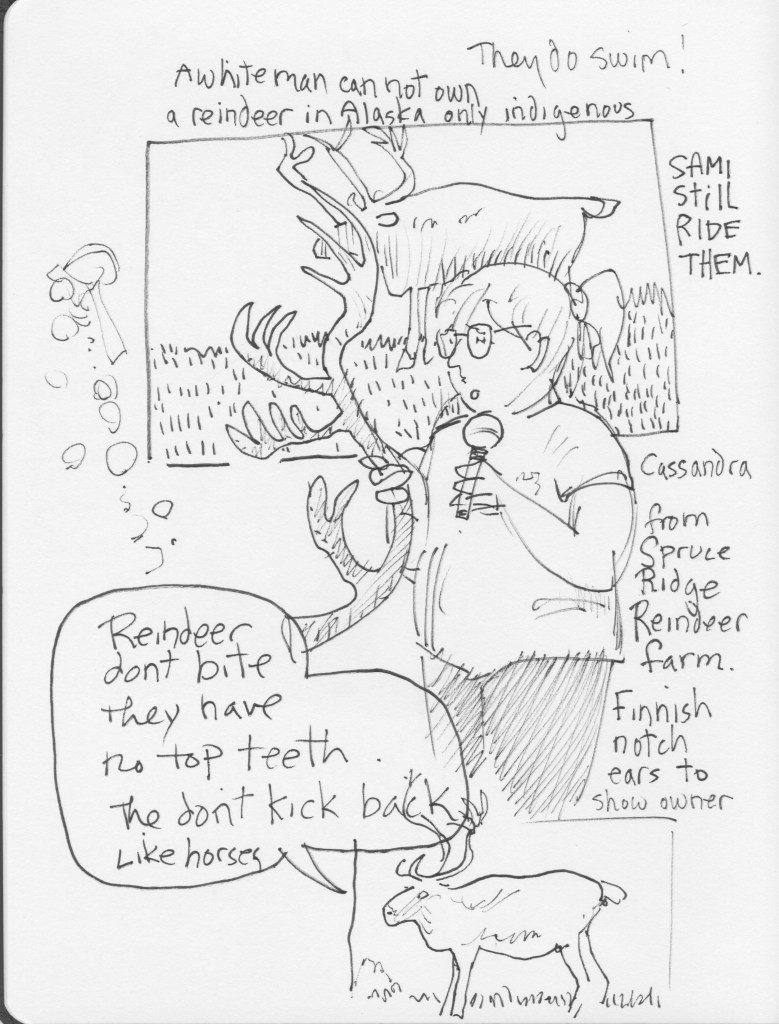 They do swim!
A white man can not own
a reindeer in Alaska only indigenous
SAMI
still
RIDE
THEM.
Cassandra
from
Spruce
Ridge
Reindeer
farm.
Finnish
notch
ears to
show owner
Reindeer
dont bite
they have
no top teeth.
The don't kick back
Like horses